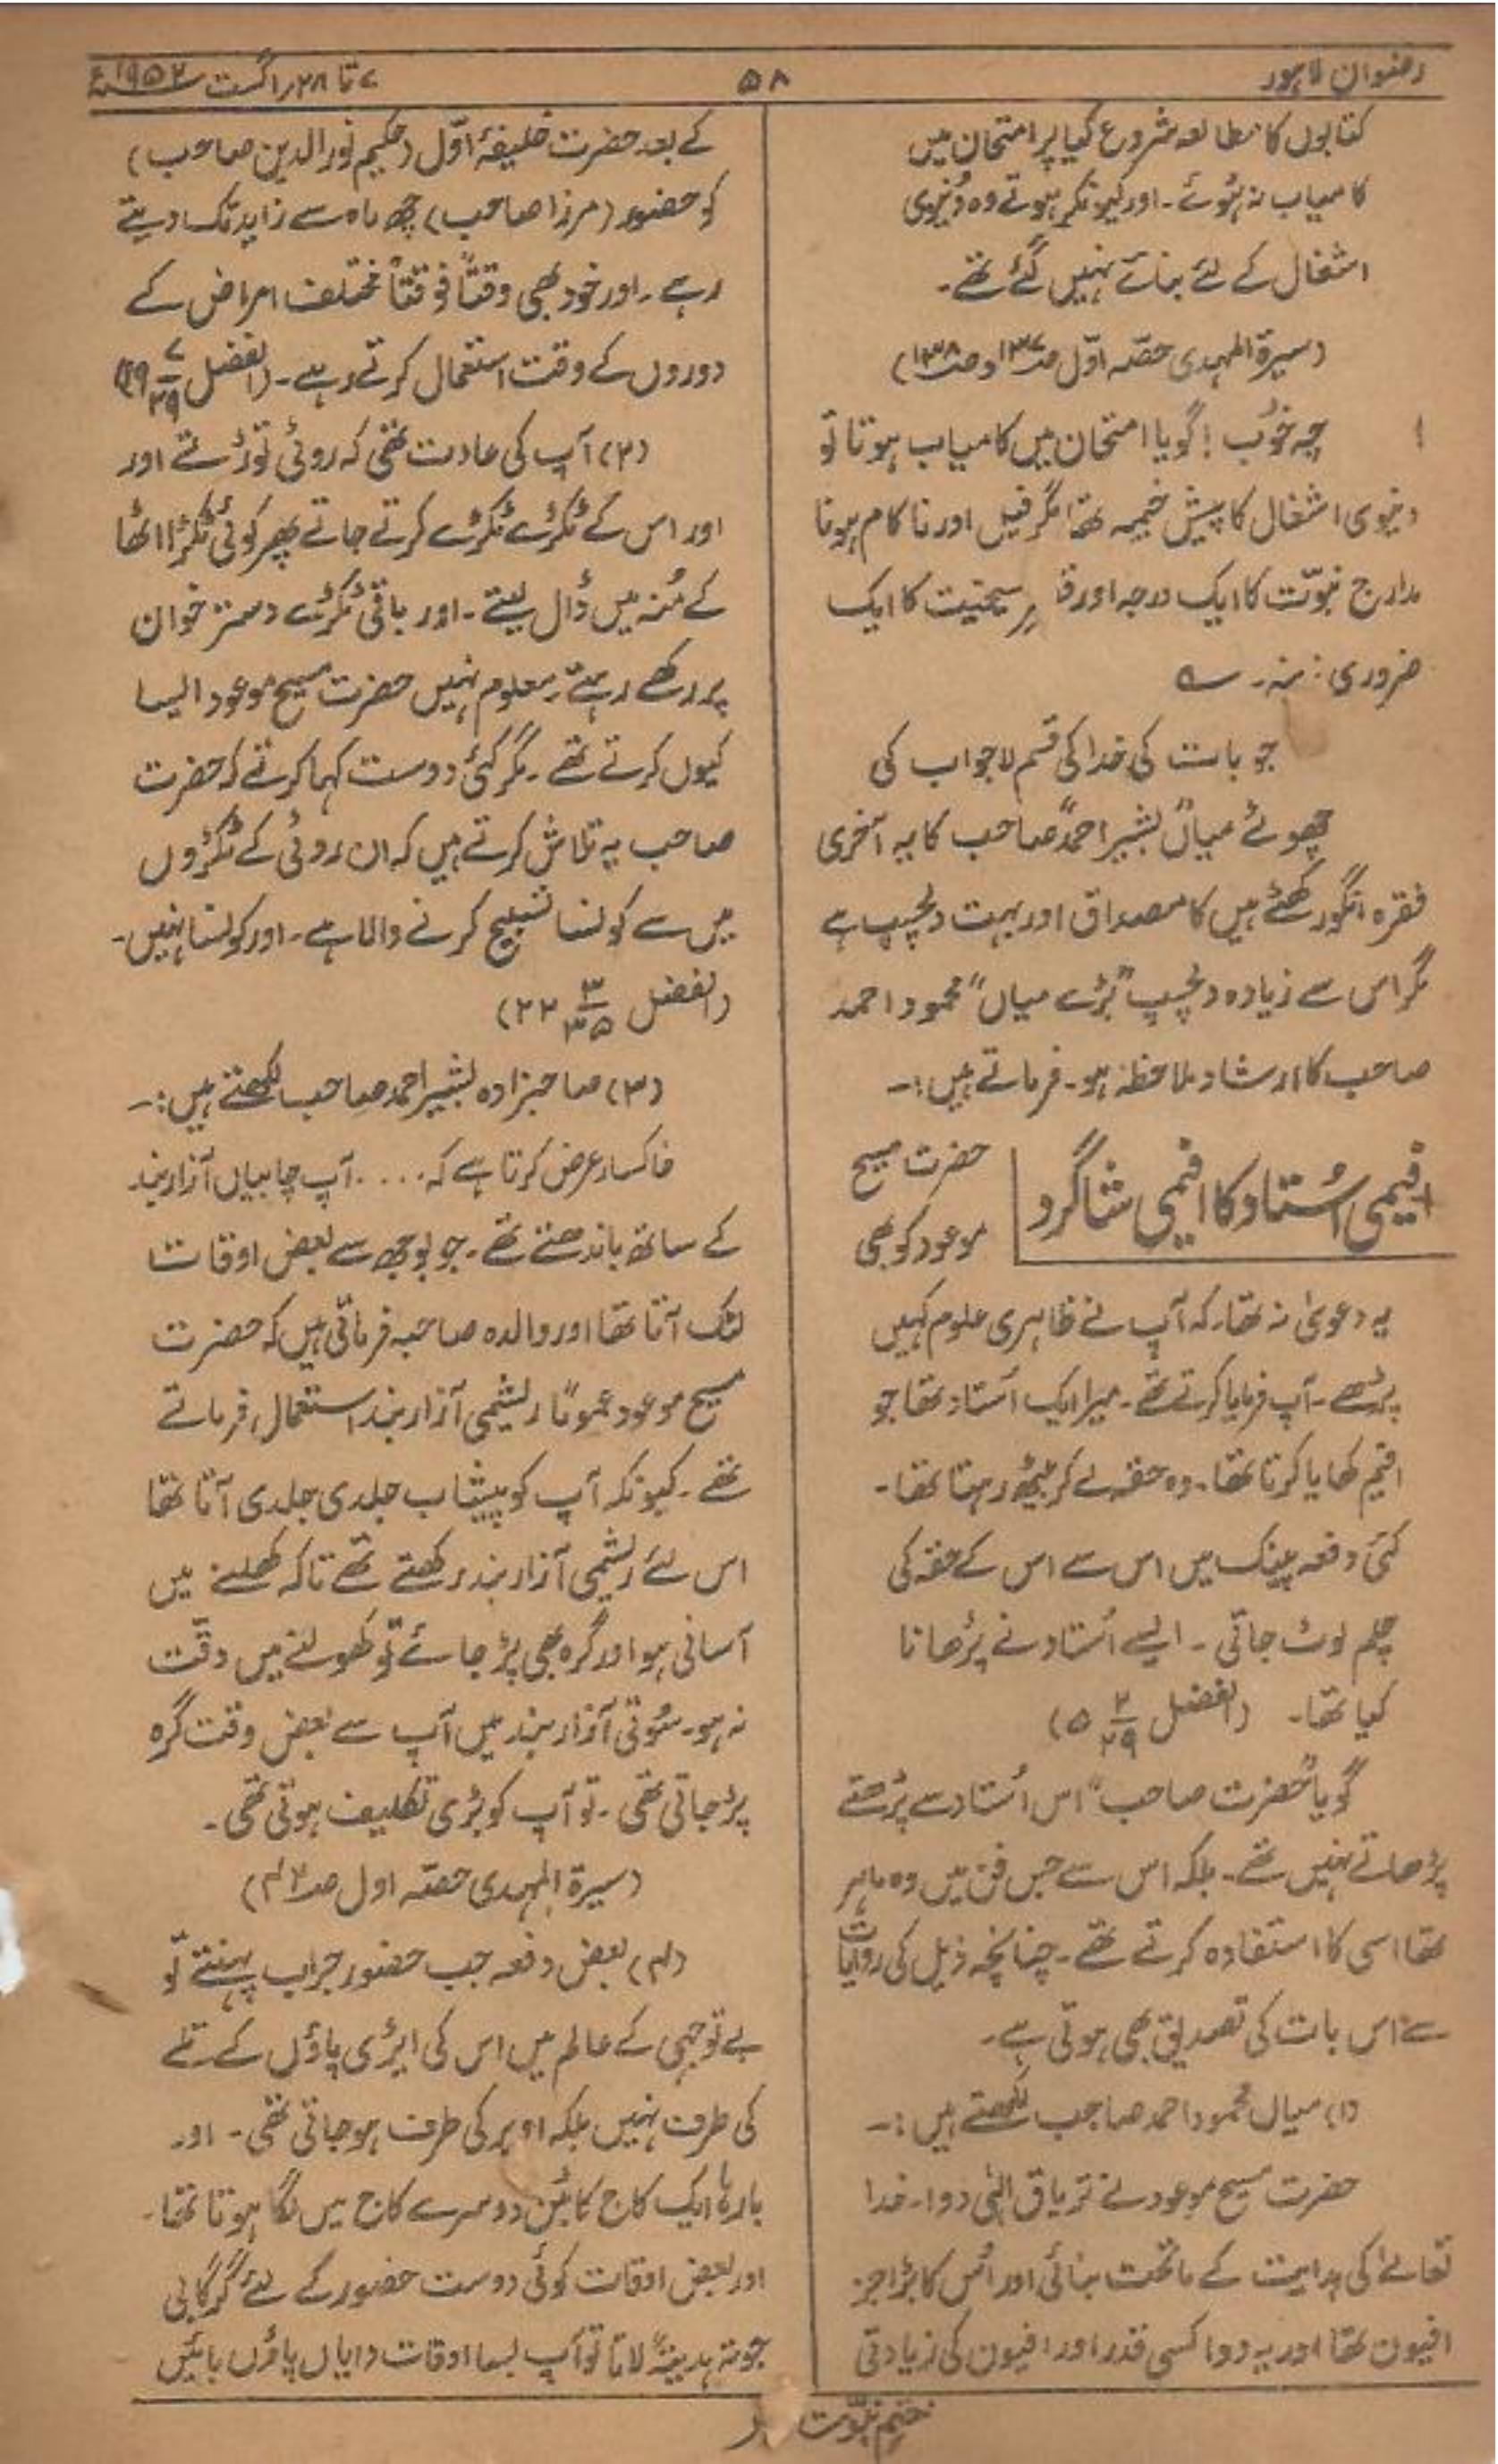 رضوان لاہور
۵۸
۷ تا ۲۸ اگست ۱۹۵۲ء
کتابوں کا مطالعہ شروع کیا پر امتحان میں
کامیاب نہ ہُوئے۔ اور کیونکر ہوتے وہ دُنیوی
اشغال کے لئے بنائے نہیں گئے تھے۔
(سیرۃ المہدی حصّہ اوّل صـ۱۳۷ و صـ۱۳۸)
چہ خُوب! گویا امتحان میں کامیاب ہوتا تو
دنیوی اشغال کا پیش خیمہ تھا مگر فیل اور ناکام ہونا
مدارج نبوّت کا ایک درجہ اور مسیحیت کا ایک
ضروری زینہ۔ ؎
جو بات کی خدا کی قسم لاجواب کی
چھوٹے میاں" بشیر احمد صاحب کا یہ آخری
فقرہ انگور کھٹے ہیں کا مصداق اور بہت دلچسپ ہے
مگر اس سے زیادہ دلچسپ "بڑے میاں" محمود احمد
صاحب کا ارشاد ملاحظہ ہو۔ فرماتے ہیں:۔
افیمی اُستاد کا افیمی شاگرد
حضرت مسیح
موعود کو بھی
یہ دعویٰ نہ تھا۔ کہ آپ نے ظاہری علوم کہیں
پڑھے۔ آپ فرمایا کرتے تھے۔ میرا ایک اُستاد تھا جو
افیم کھایا کرتا تھا۔ وہ حقہ لے کر بیٹھ رہتا تھا۔
کئی دفعہ پینک میں اس سے اس کے حقہ کی
چلم ٹوٹ جاتی۔ ایسے اُستاد نے پڑھانا
کیا تھا۔ (الفضل ۵/۲/۲۹)
گویا "حضرت صاحب" اس اُستاد سے پڑھتے
پڑھاتے نہیں تھے۔ بلکہ اس سے جس فن میں وہ ماہر
تھا اسی کا استفادہ کرتے تھے۔ چنانچہ ذیل کی روایات
سے اس بات کی تصدیق بھی ہوتی ہے۔
(۱) میاں محمود احمد صاحب لکھتے ہیں:۔
حضرت مسیح موعود نے تریاق الٰہی دوا۔ خدا
تعالےٰ کی ہدایت کے ماتحت بنائی اور اُس کا بڑا جز
افیون تھا اور یہ دوا کسی قدر اور افیون کی زیادتی
کے بعد حضرت خلیفۂ اوّل (حکیم نورالدین صاحب)
کو حضور (مرزا صاحب) چھ ماہ سے زاید تک دیتے
رہے۔ اور خود بھی وقتاً فوقتاً مختلف امراض کے
دوروں کے وقت استعمال کرتے رہے۔ (الفضل ۱۹/۷/۲۹)
(۲) آپ کی عادت تھی کہ روٹی توڑتے اور
اور اس کے ٹکڑے ٹکڑے کرتے جاتے پھر کوئی ٹکڑا اٹھا
کے مُنہ میں ڈال لیتے۔ اور باقی ٹکڑے دستر خوان
پر رکھے رہتے۔ معلوم نہیں حضرت مسیح موعود ایسا
کیوں کرتے تھے۔ مگر کئی دوست کہا کرتے کہ حضرت
صاحب یہ تلاش کرتے ہیں کہ ان روٹی کے ٹکڑوں
میں سے کونسا تسبیح کرنے والا ہے۔ اور کونسا نہیں۔
(الفضل ۳/۳۵ ۲۲)
(۳) صاحبزادہ بشیر احمد صاحب لکھتے ہیں:۔
خاکسار عرض کرتا ہے کہ .... آپ چابیاں آزار بند
کے ساتھ باندھتے تھے۔ جو بوجھ سے بعض اوقات
لٹک آتا تھا اور والدہ صاحبہ فرماتی ہیں کہ حضرت
مسیح موعود عموماً ریشمی آزار بند استعمال فرماتے
تھے۔ کیونکہ آپ کو پیشاب جلدی جلدی آتا تھا
اس لئے ریشمی آزار بند رکھتے تھے تاکہ کھلنے میں
آسانی ہو اور گرہ بھی پڑ جائے تو کھولنے میں دقّت
نہ ہو۔ سُوتی آزار بند میں آپ سے بعض وقت گرہ
پڑ جاتی تھی۔ تو آپ کو بڑی تکلیف ہوتی تھی۔
(سیرۃ المہدی حصّہ اول صـ۴۲)
(۴) بعض دفعہ جب حضور جراب پہنتے تو
بے توجہی کے عالم میں اس کی ایڑی پاؤں کے تلے
کی طرف نہیں بلکہ اوپر کی طرف ہو جاتی تھی۔ اور
بارہا ایک کاج کا بٹن دوسرے کاج میں لگا ہوتا تھا۔
اور بعض اوقات کوئی دوست حضور کے لئے گرگابی
جوتہ ہدیۃً لاتا تو آپ بسا اوقات دایاں پاؤں بائیں
ختم نبوّت